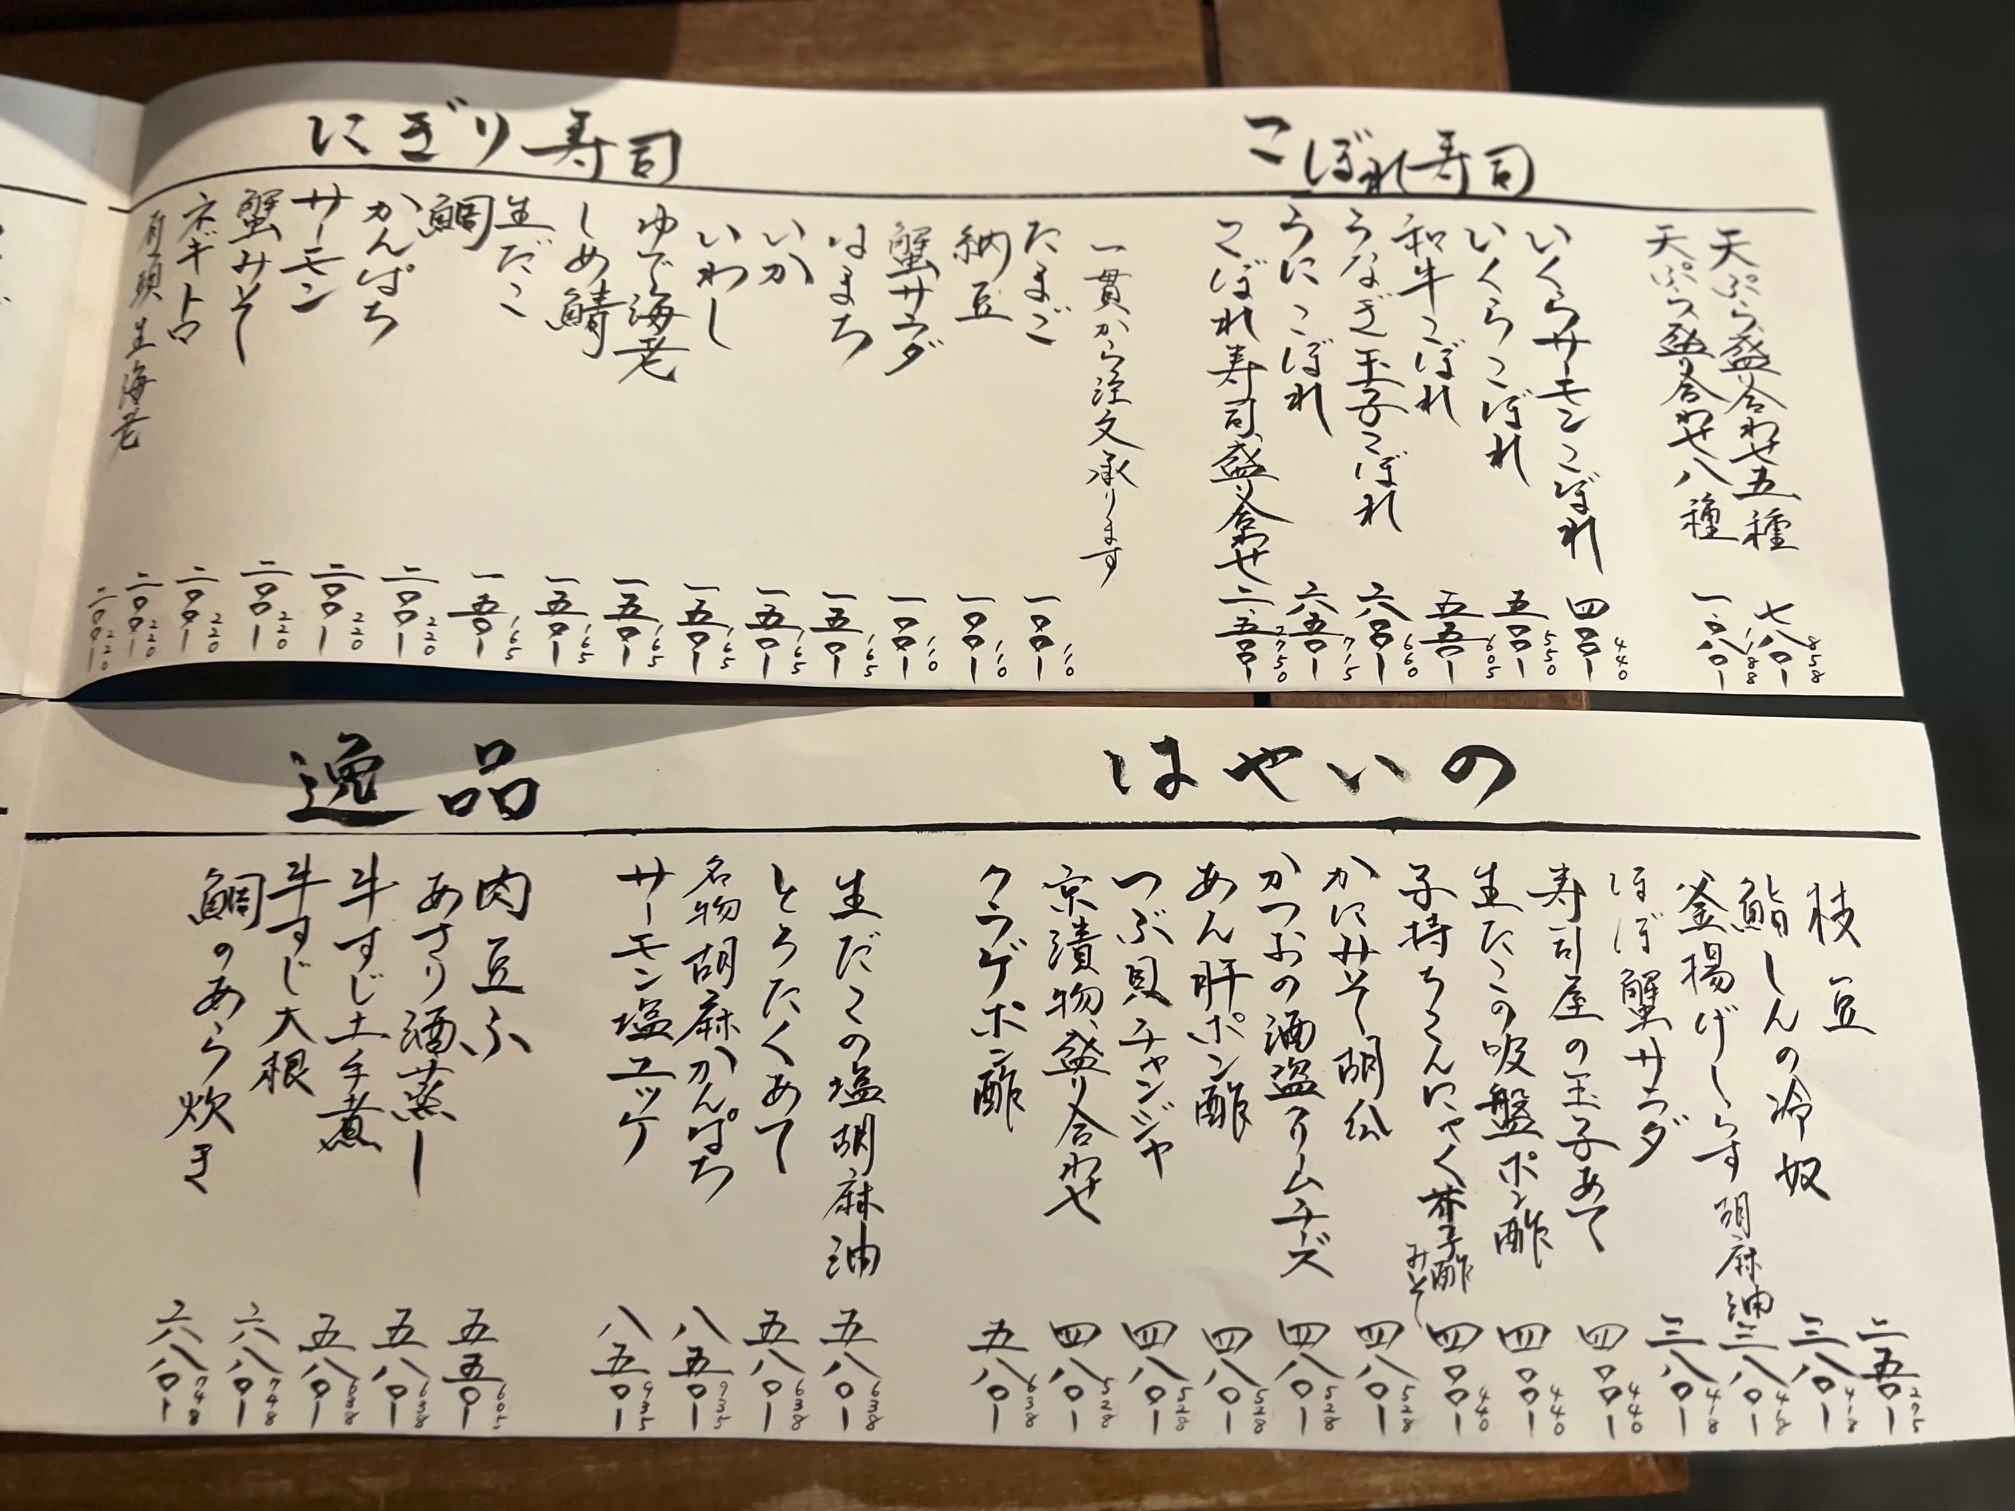 こぼれ寿司
天ぷら盛り合わせ五種 七八〇ー 858
天ぷら盛り合わせ八種 一、〇八〇ー 1188
いくらサーモンこぼれ 四〇〇ー 440
いくらこぼれ 五〇〇ー 550
和牛こぼれ 五五〇ー 605
うなぎ玉子こぼれ 六〇〇ー 660
うにこぼれ 六五〇ー 715
こぼれ寿司盛り合わせ 二、五〇〇ー 2750
にぎり寿司
一貫から注文承ります
たまご 一〇〇ー 110
納豆 一〇〇ー 110
蟹サラダ 一〇〇ー 110
はまち 一五〇ー 165
いか 一五〇ー 165
いわし 一五〇ー 165
ゆで海老 一五〇ー 165
しめ鯖 一五〇ー 165
生だこ 一五〇ー 165
鯛 二〇〇ー 220
かんぱち 二〇〇ー 220
サーモン 二〇〇ー 220
蟹みそ 二〇〇ー 220
ネギトロ 二〇〇ー 220
有頭生海老 二〇〇ー 220
はやいの
枝豆 二五〇ー 275
鮨しんの冷奴 三八〇ー 418
釜揚げしらす胡麻油 三八〇ー 418
ほぼ蟹サラダ 三八〇ー 418
寿司屋の玉子あて 四〇〇ー 440
生たこの吸盤ポン酢 四〇〇ー 440
子持ちこんにゃく芥子酢みそ 四〇〇ー 440
かにみそ胡瓜 四八〇ー 528
かつおの酒盗クリームチーズ 四八〇ー 528
あん肝ポン酢 四八〇ー 528
つぶ貝チャンジャ 四八〇ー 528
京漬物盛り合わせ 四八〇ー 528
クラゲポン酢 五八〇ー 638
生だこの塩胡麻油 五八〇ー 638
とろたくあて 五八〇ー 638
名物胡麻かんぱち 八五〇ー 935
サーモン塩ユッケ 八五〇ー 935
逸品
肉豆ふ 五五〇ー 605
あさり酒蒸し 五八〇ー 638
牛すじ土手煮 五八〇ー 638
牛すじ大根 六八〇ー 748
鯛のあら炊き 六八〇ー 748